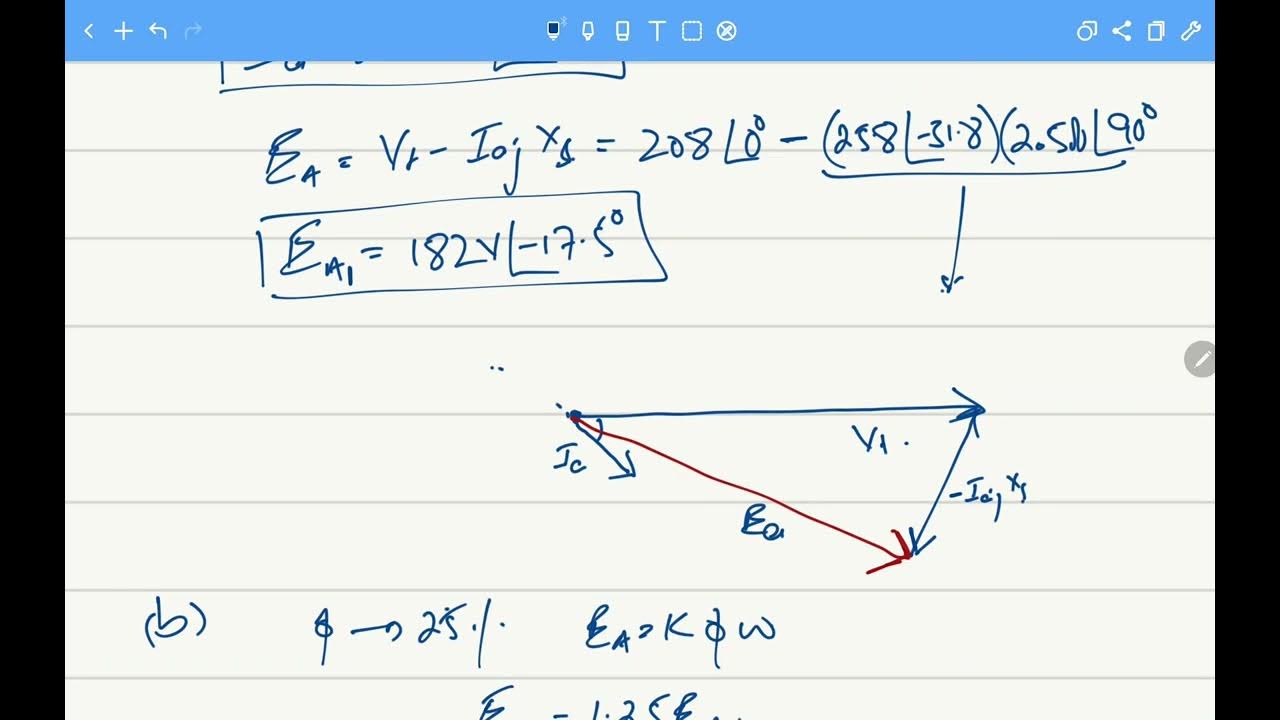 E_A = V_t - I_a j X_s = 208∠0° - (258∠-31.8)(2.5Ω∠90°
E_A1 = 182V∠-17.5°
V_t.
I_a
-I_a j X_s
E_a
(b) φ → 25% E_A = Kφω
= 1.25E